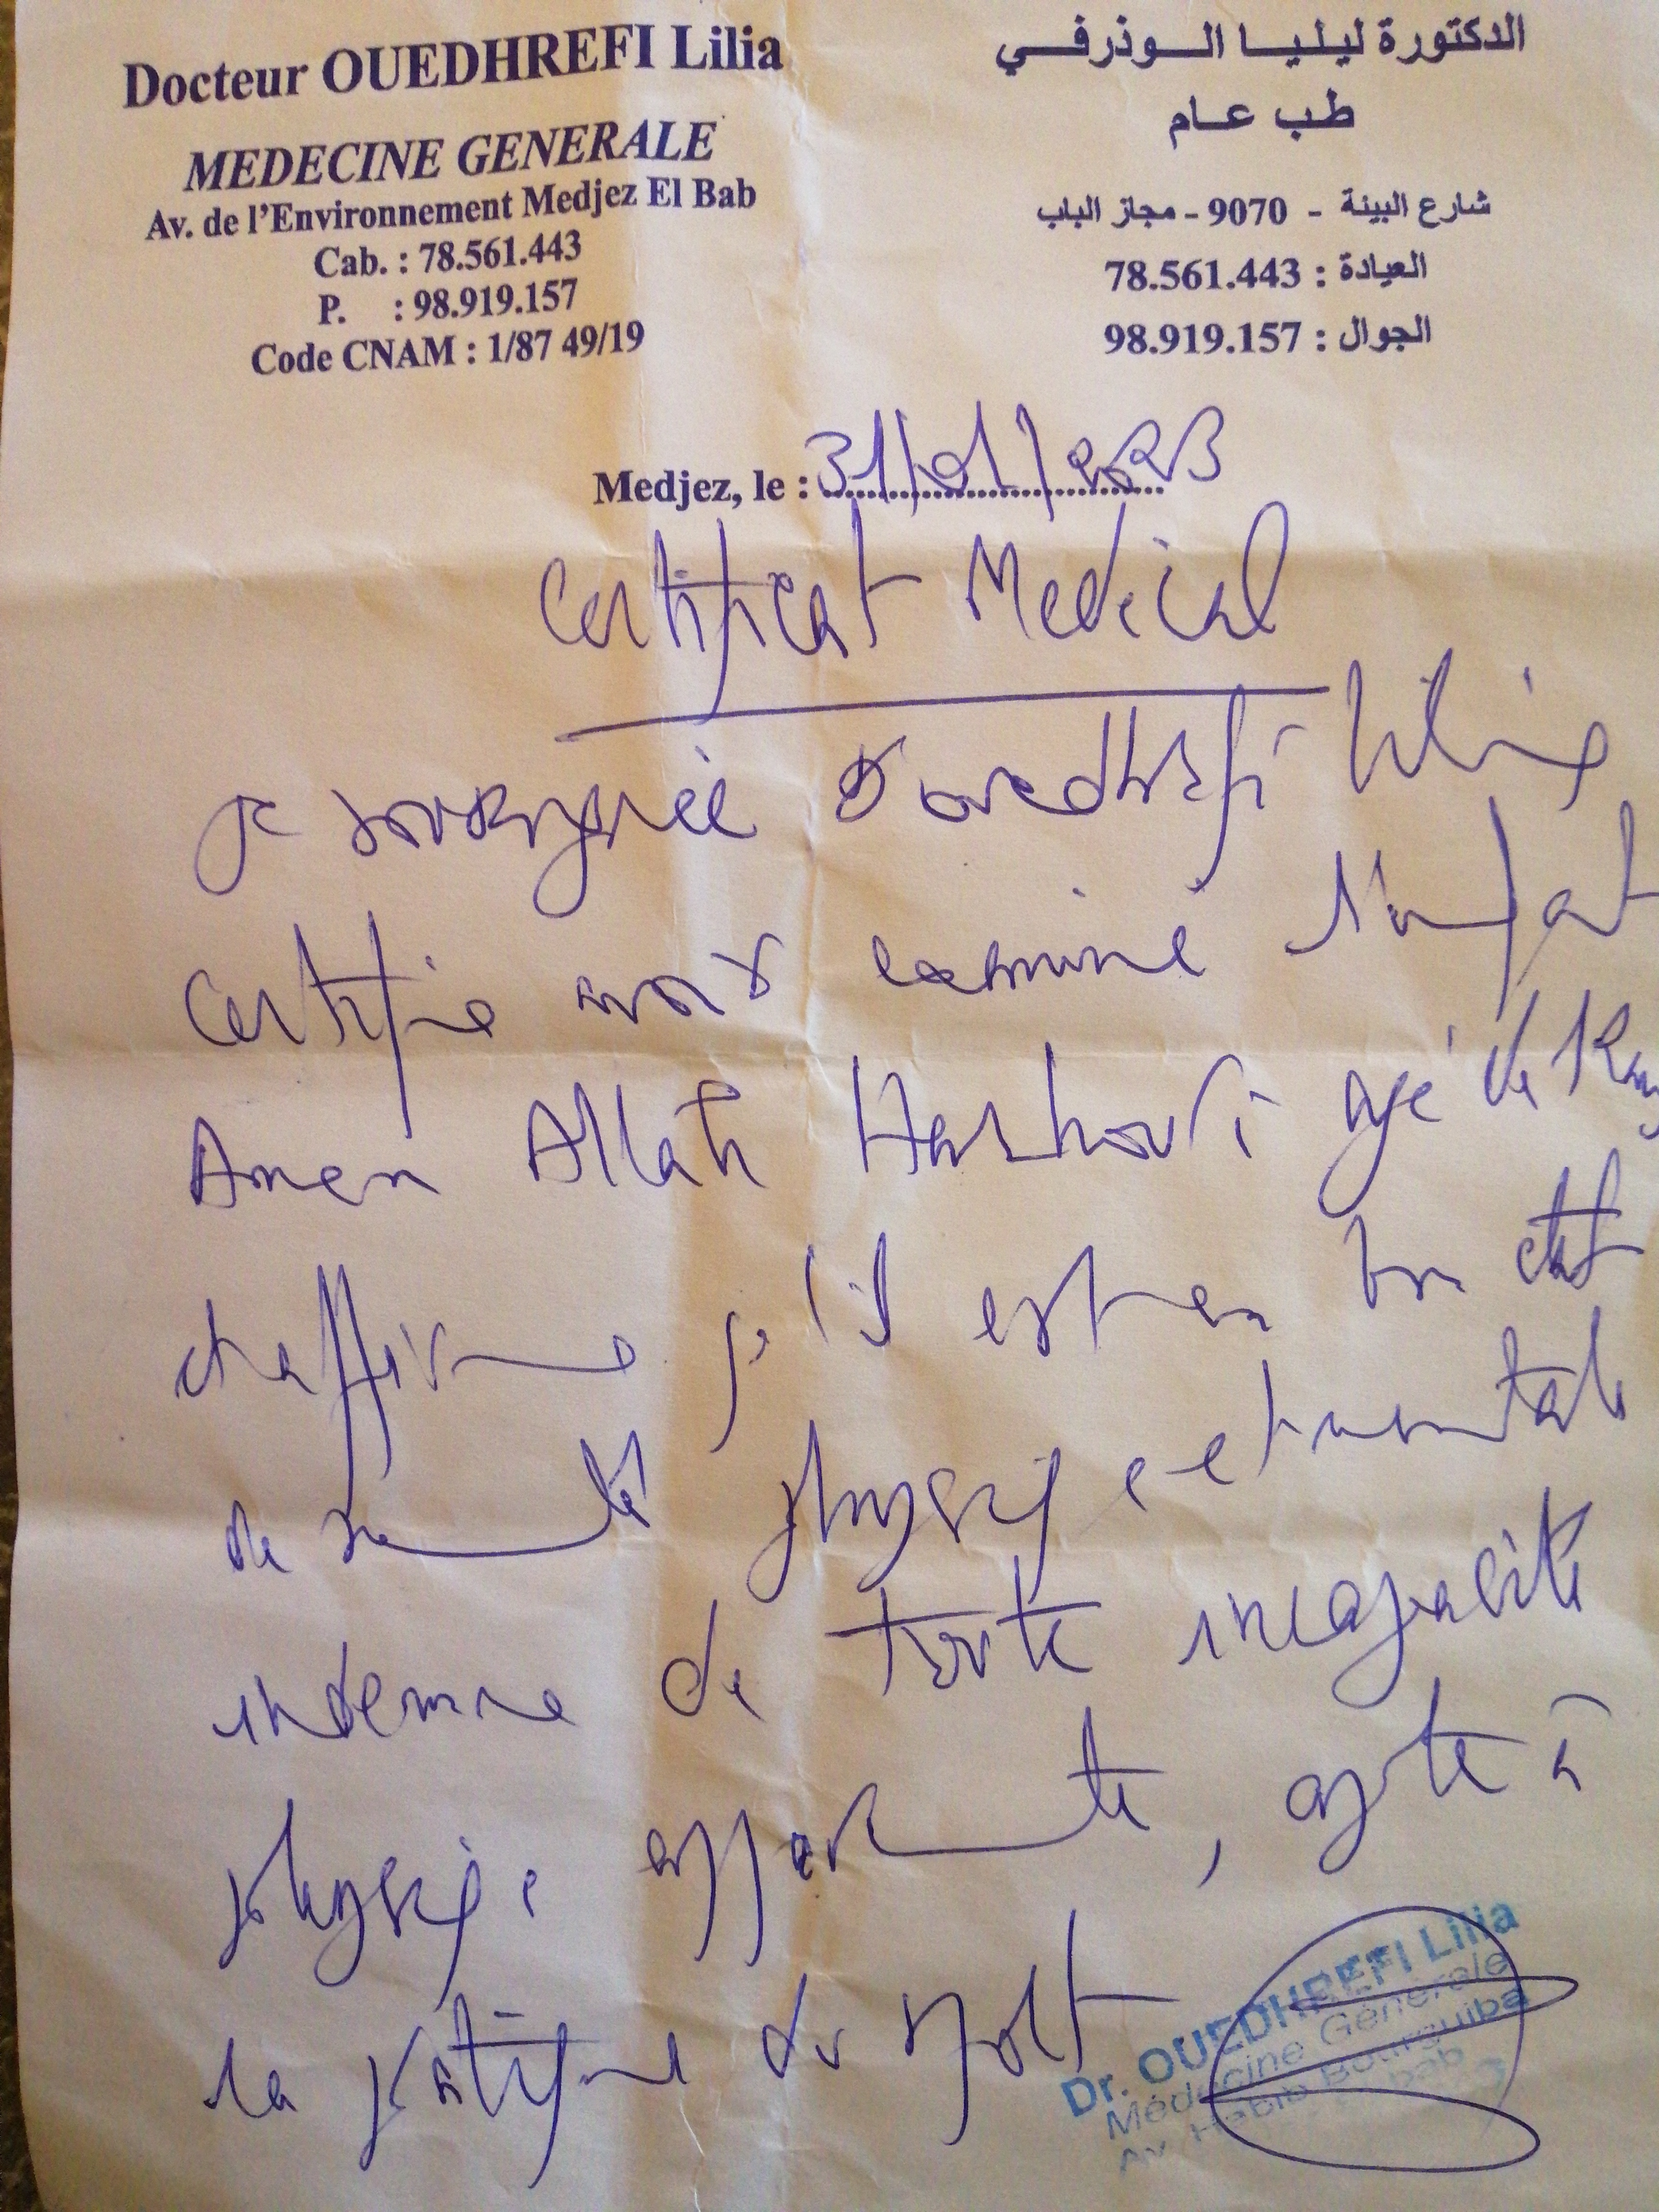 Docteur OUEDHREFI Lilia
MEDECINE GENERALE
Av. de l'Environnement Medjez El Bab
Cab. : 78.561.443
P. : 98.919.157
Code CNAM : 1/87 49/19
الدكتورة ليليا الوذرفي
طب عام
شارع البيئة - 9070 - مجاز الباب
العيادة : 78.561.443
الجوال : 98.919.157
Medjez, le : 31/01/2023
Certificat Medical
Je soussignée Dr Ouedhrefi Lilia
Certifie avoir examiné l'enfant
Amen Allah agé de
et affirme qu'il est en bon état
de santé physique et mentale
indemne de toute incapacité
physique apparente, apte à
la pratique du sport
Dr. OUEDHREFI Lilia
Médecine Générale
Av. Habib Bourguiba